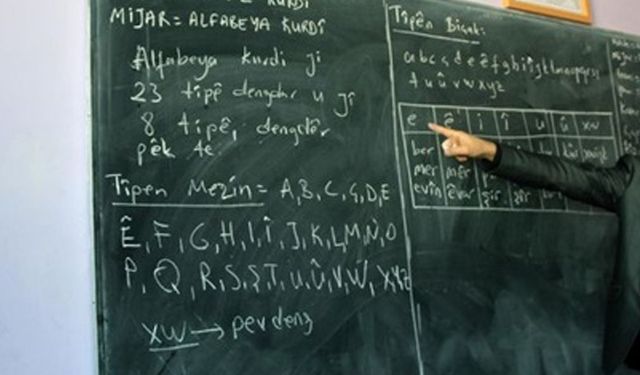 KURDÎ
MIJAR = ALFABEYA KURDÎ
Alfabeya kurdi ji
23 tîpê dengdar u jî
8 tîpê, dengdêr
pêk tê.
Tîpên Mezin = A, B, C, Ç, D, E
Ê, F, G, H, I, Î, J, K, L, M, N, O
P, Q, R, S, Ş, T, U, Û, V, W, X, Y, Z
XW → pevdeng
Tîpên Biçûk:
a b c ç d e ê f g h i î j k l m n o p q r s ş
t u û v w x y z
e ê i î u û xw
ber
mer mêr
evîn êvar şir şîr